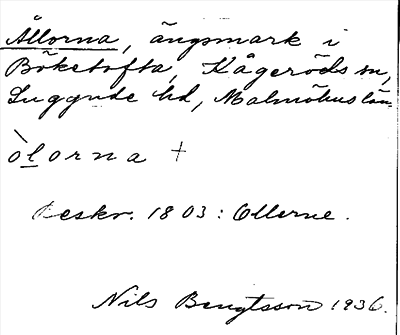 Ållorna, ängsmark i
Böketofta, Kågeröds sn,
Luggude hd, Malmöhus län.
òlorna †
Beskr. 1803: Ollerne.
Nils Bengtsson 1936.